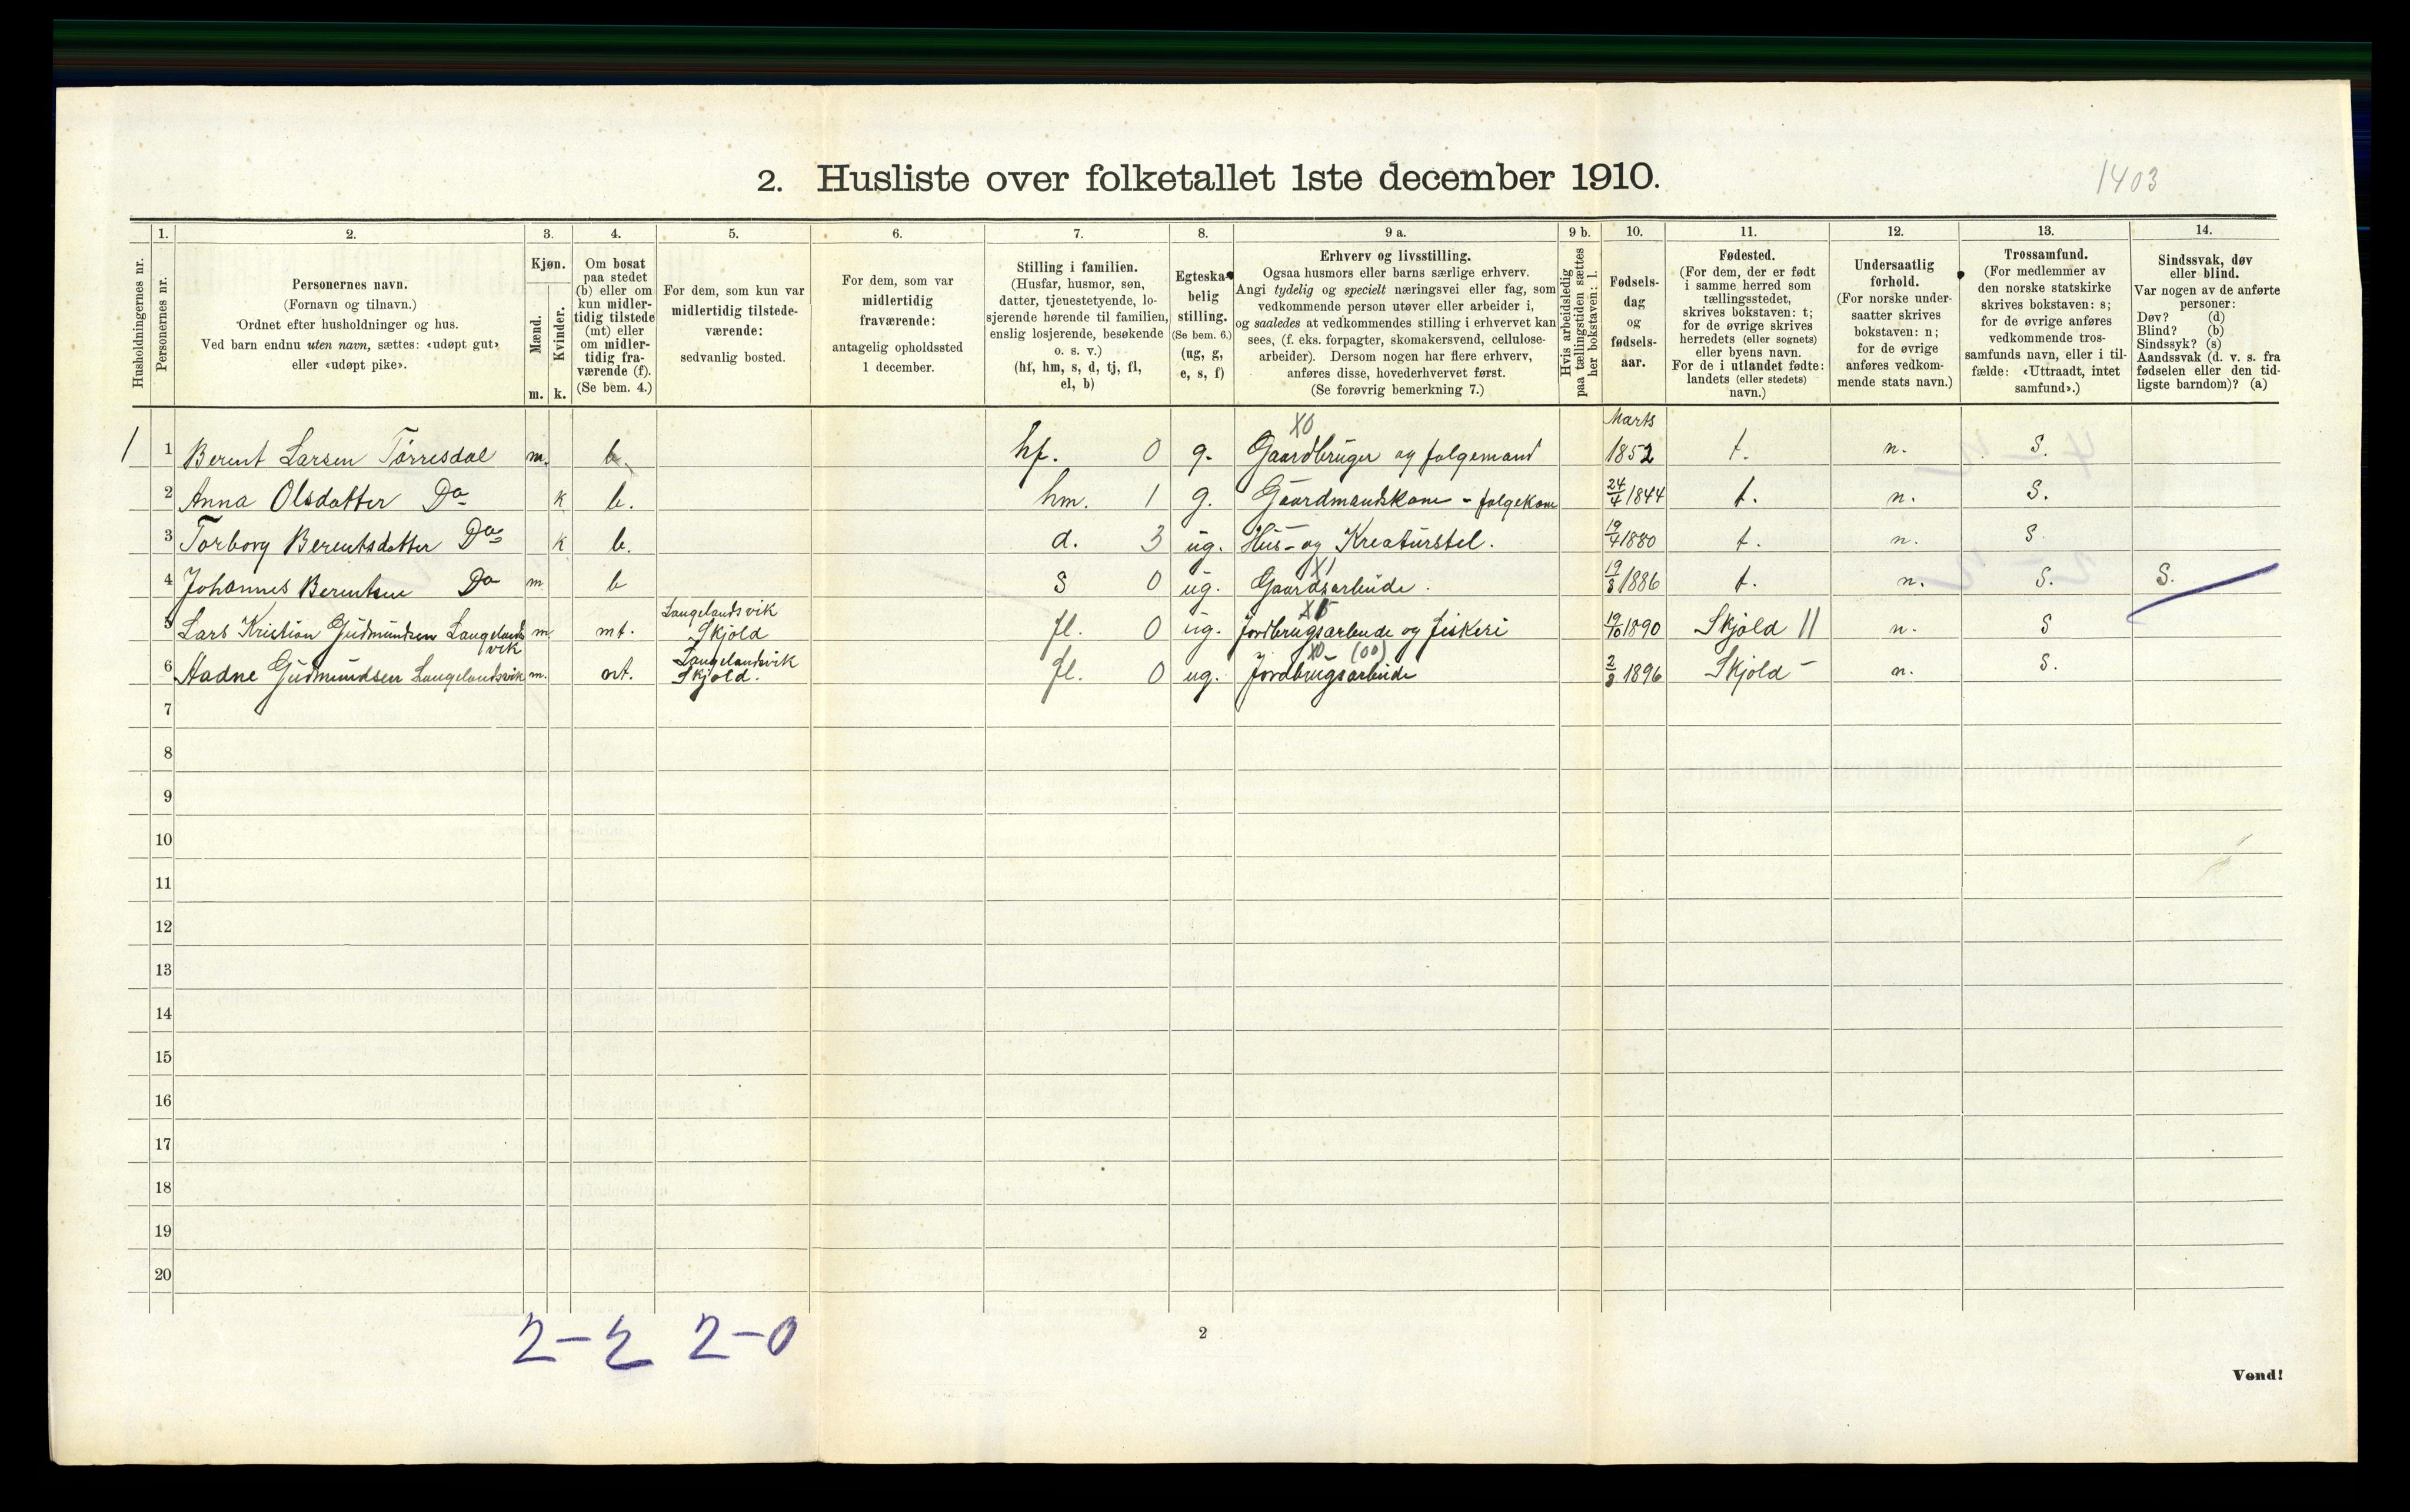 2. Husliste over folketallet 1ste december 1910.
1403
1. 2. 3. 4. 5. 6. 7. 8. 9 a. 9 b. 10. 11. 12. 13. 14.
Husholdningernes nr.
Personernes nr.
Personernes navn.
(Fornavn og tilnavn.)
Ordnet efter husholdninger og hus.
Ved barn endnu uten navn, sættes: «udøpt gut»
eller «udøpt pike».
Kjøn.
Mænd.
Kvinder.
m. k.
Om bosat
paa stedet
(b) eller om
kun midler-
tidig tilstede
(mt) eller
om midler-
tidig fra-
værende (f).
(Se bem. 4.)
For dem, som kun var
midlertidig tilstede-
værende:
sedvanlig bosted.
For dem, som var
midlertidig
fraværende:
antagelig opholdssted
1 december.
Stilling i familien.
(Husfar, husmor, søn,
datter, tjenestetyende, lo-
sjerende hørende til familien,
enslig losjerende, besøkende
o. s. v.)
(hf, hm, s, d, tj, fl,
el, b)
Egteska-
belig
stilling.
(Se bem. 6.)
(ug, g,
e, s, f)
Erhverv og livsstilling.
Ogsaa husmors eller barns særlige erhverv.
Angi tydelig og specielt næringsvei eller fag, som
vedkommende person utøver eller arbeider i,
og saaledes at vedkommendes stilling i erhvervet kan
sees, (f. eks. forpagter, skomakersvend, cellulose-
arbeider). Dersom nogen har flere erhverv,
anføres disse, hovederhvervet først.
(Se forøvrig bemerkning 7.)
Hvis arbeidsledig
paa tællingstiden sættes
her bokstaven: l.
Fødsels-
dag
og
fødsels-
aar.
Fødested.
(For dem, der er født
i samme herred som
tællingsstedet,
skrives bokstaven: t;
for de øvrige skrives
herredets (eller sognets)
eller byens navn.
For de i utlandet fødte:
landets (eller stedets)
navn.)
Undersaatlig
forhold.
(For norske under-
saatter skrives
bokstaven: n;
for de øvrige
anføres vedkom-
mende stats navn.)
Trossamfund.
(For medlemmer av
den norske statskirke
skrives bokstaven: s;
for de øvrige anføres
vedkommende tros-
samfunds navn, eller i til-
fælde: «Uttraadt, intet
samfund».)
Sindssvak, døv
eller blind.
Var nogen av de anførte
personer:
Døv? (d)
Blind? (b)
Sindssyk? (s)
Aandssvak (d. v. s. fra
fødselen eller den tid-
ligste barndom)? (a)
X0 Marts
1 1 Berent Larsen Tørresdal m. b. hf. 0 g. Gaardbruger og følgemand 1852 t. n. S.
2 Anna Olsdatter Do k b. hm. 1 g. Gaardmandskone - følgekone 24/4 1844 t. n. S.
3 Torborg Berentsdatter Do k b. d. 3 ug. Hus- og Kreaturstel. 19/4 1880 t. n. S
X1
4 Johannes Berentsen Do m b s 0 ug. Gaardsarbeide. 19/8 1886 t. n. S. S.
Langelandsvik
5 Lars Kristian Gudmundsen Langelands m. mt. Skjold fl. 0 ug. Jordbrugsarbeide og fiskeri 19/10 1890 Skjold 11 n. S
vik Langelandsvik X0 (00)
6 Aadne Gudmundsen Langelandsvik m. mt. Skjold. fl. 0 ug. Jordbrugsarbeide 2/3 1896 Skjold - n. S.
7
8
9
10
11
12
13
14
15
16
17
18
19
20
2-2 2-0
2
Vend!